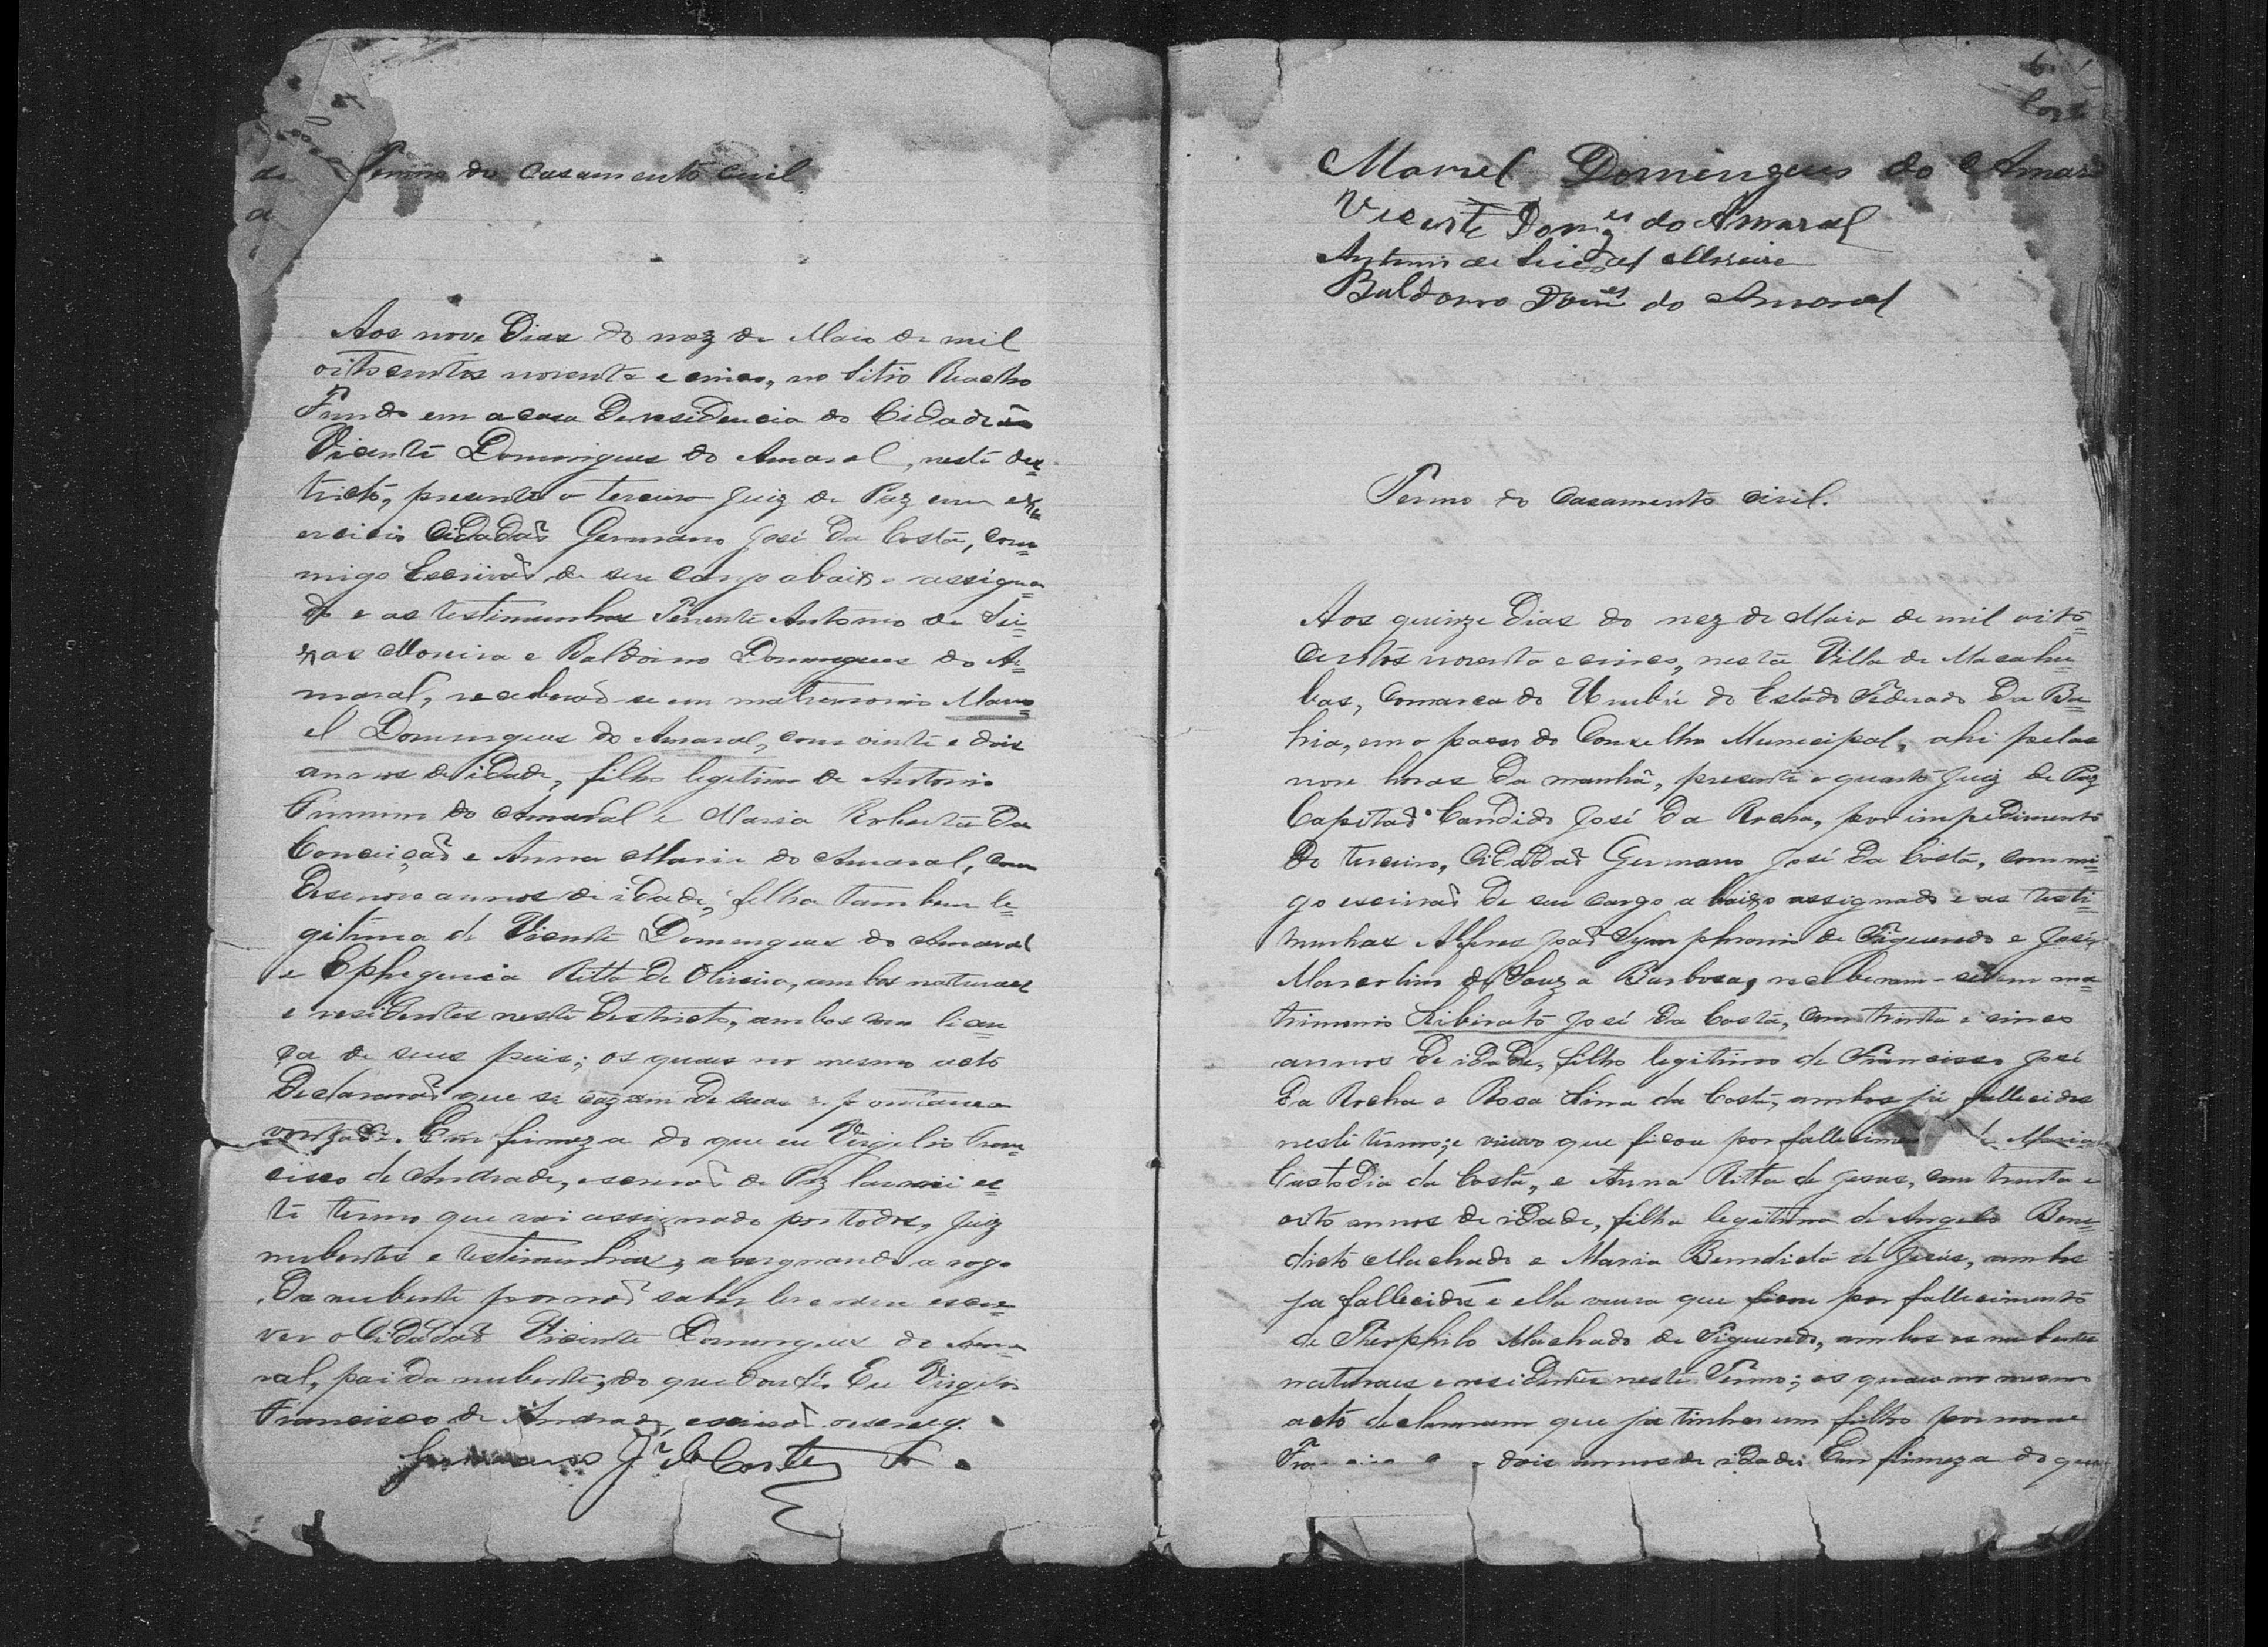 Termo do Casamento Civil
Aos nove dias do mez de Maio de mil
oitocentos noventa e cinco, no sitio Riacho
Fundo em a casa de residencia do Cidadão
Vicente Domingues do Amaral, neste des=
tricto, presente o terceiro Juiz de Paz em ex=
ercicio Cidadão Germano José da Costa, com=
migo Escrivão de seu cargo abaixo assigna
do e as testimunhas Tenente Antonio de
Moreira e Baldoino Domingues do A=
maral, receberão-se em matrimonio Mano=
el Domingues do Amaral, com vinte e dois
annos de idade, filho legitimo de Antonio
Firmino do Amaral e Maria Roberta da
Conceição e Anna Maria do Amaral, com
desenove annos de idade, filha tambem le=
gitima de Vicente Domingues do Amaral
e Ephegenia Ritta de Oliveira, ambos naturaes
e residentes neste Destricto, ambos com licen
ça de seus paes; os quaes no mesmo acto
declararão que se cazam de suas espontanea
vontade. Em firmeza do que eu Virgilio Fran=
cisco de Andrade, escrivão de Paz lavrei es=
te termo que vai assignado por todos, Juiz
nubentes e testimunhas, assignando a rogo
da nubente por não saber ler e nem escre=
ver o Cidadão Vicente Domingues do Ama=
ral, pai da nubente, do que dou fé. Eu Virgilio
Francisco de Andrade, escrivão o escrevy.
Germano J. da Costa
Manoel Domingues do Amaral
Vicente Dom.es do Amaral
Antonio de Moreira
Baldoino Dom.es do Amaral
Termo do Casamento Civil.
Aos quinze dias do mez de Maio de mil oito=
centos noventa e cinco, nesta Villa de Macahu
bas, Comarca do Urubú do Estado Federado da Ba=
hia, em o paço do Conselho Municipal, ahi pelas
nove horas da manhã, presente o quarto Juiz de Paz
Capitão Candido José da Rocha, por impedimento
do terceiro, Cidadão Germano José da Costa, commi=
go escrivão de seu cargo a baixo assignado e as testi=
munhas Alferes João Symphronio de Figueredo e José
Marcolino de Souza Barbosa, receberam-se em ma=
trimonio Liberato José da Costa, com trinta e cinco
annos de idade, filho legitimo de Francisco José
da Rocha e Rosa Lina da Costa, ambos já fallecidos
neste termo; e viuvo que ficou por fallecimento de Maria
Custodia da Costa, e Anna Ritta de Jesus, com trinta e
oito annos de idade, filha legitima de Angelo Bene=
dicto Machado e Maria Benedicta de Jesús, ambos
já fallecidos e ella viuva que ficou por fallecimento
de Theophilo Machado de Figueredo, ambos os nubentes
naturaes e residentes neste Termo; os quaes no mesmo
acto declararam que já tinha um filho por nome
dois annos de idade. Em firmeza do que